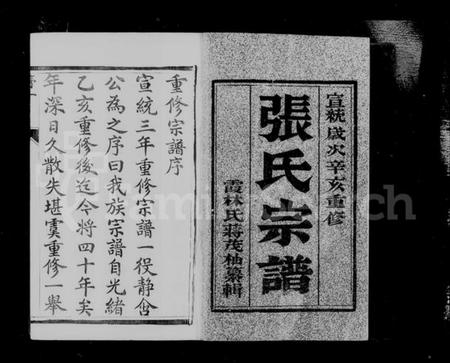 宣統歲次辛亥重修
張氏宗譜
霞林氏蔣茂柚纂輯
重修宗譜序
宣統三年重修宗譜一役靜齋
公為之序曰我族宗譜自光緒
乙亥重修後迄今將四十年矣
年深日久散失堪虞重修一舉